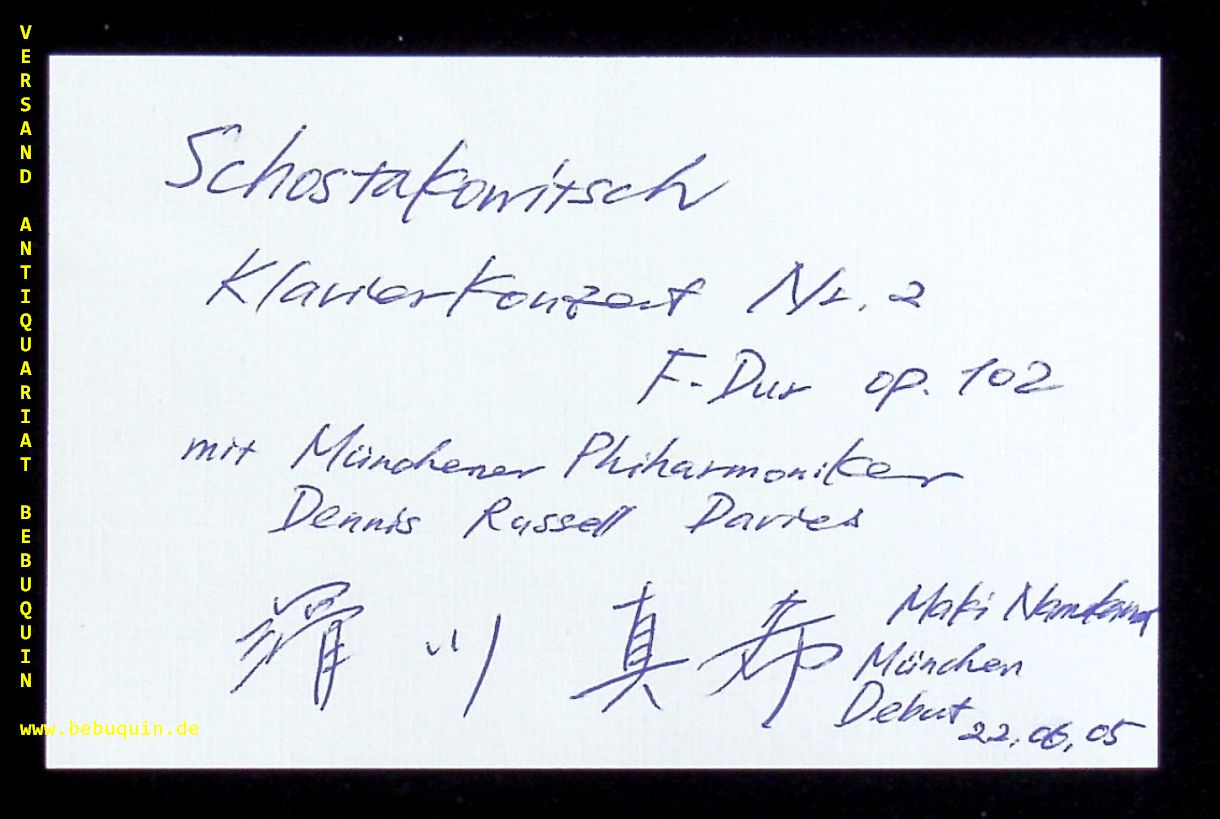 VERSAND ANTIQUARIAT BEBUQUIN
www.bebuquin.de
Schostakowitsch
Klavierkonzert Nr. 2
F-Dur op. 102
mit Münchener Phiharmoniker
Dennis Russell Davies
滑川 真希
Maki Namekawa
München
Debut
22.06.05